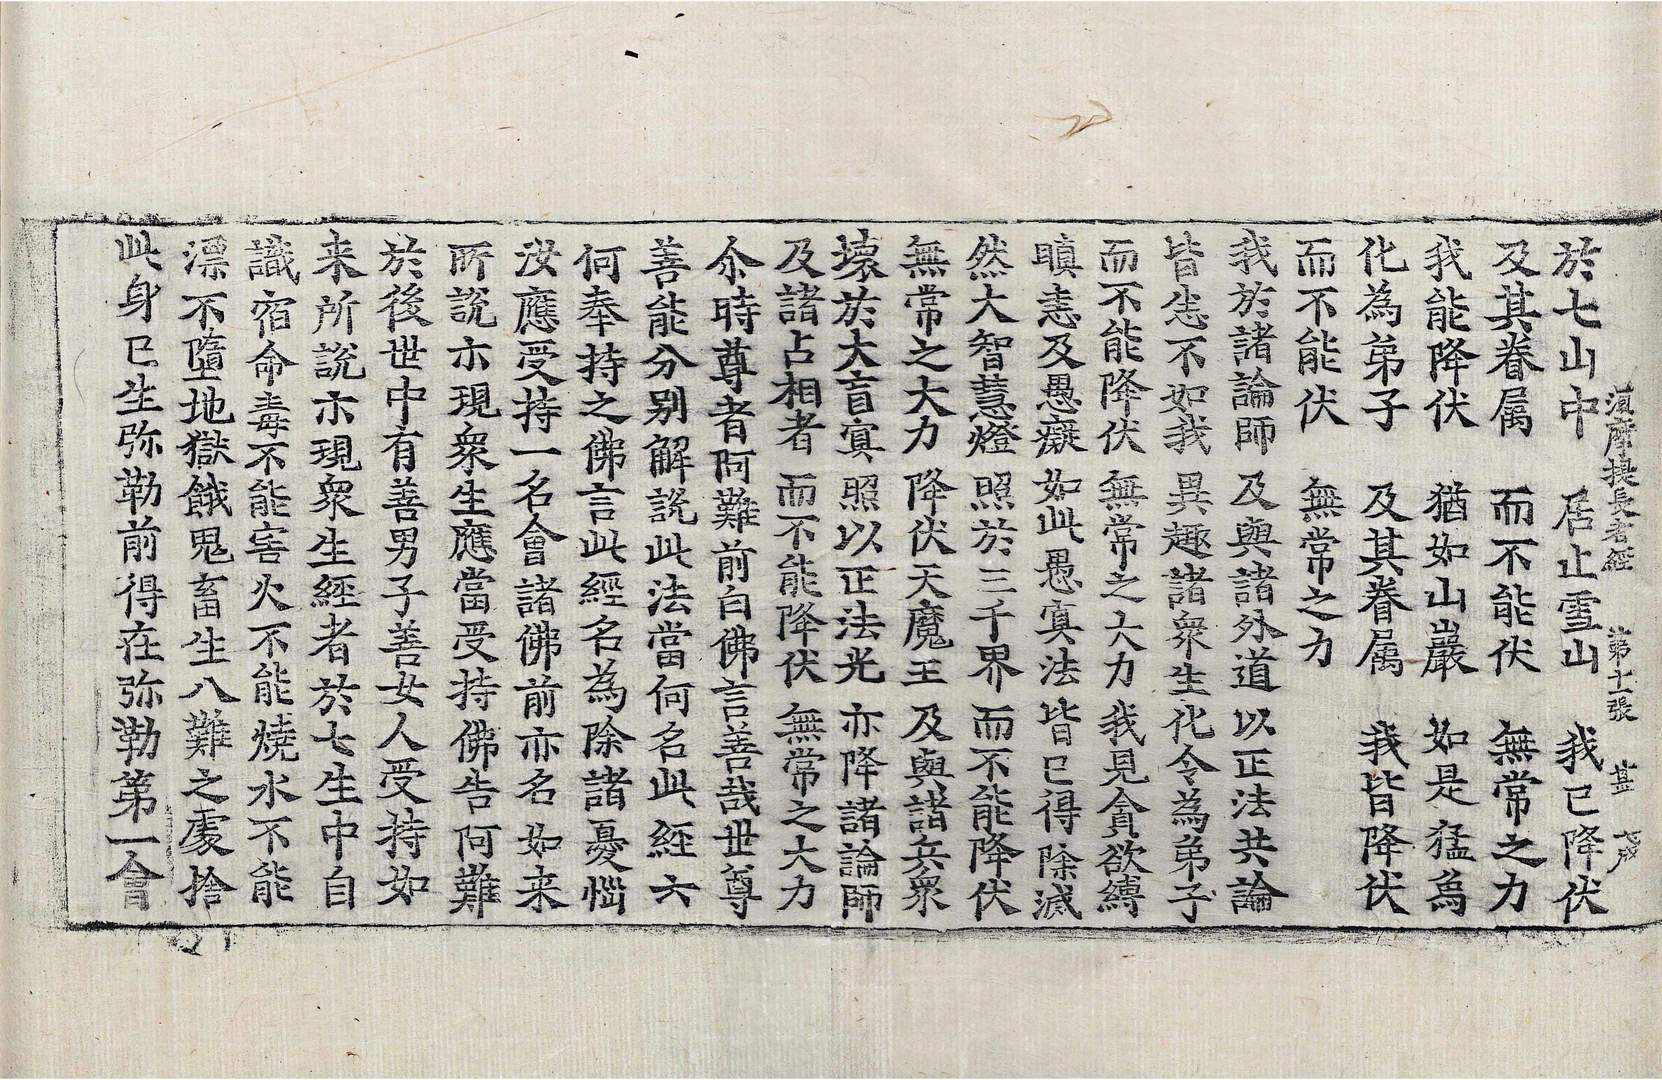 須摩提長者經　第十一張　甚
於七山中　居止雪山　我已降伏
及其眷属　而不能伏　無常之力
我能降伏　猶如山巖　如是猛為
化為弟子　及其眷属　我皆降伏
而不能伏　無常之力
我於諸論師　及與諸外道　以正法共論
皆悉不如我　異趣諸衆生　化令為弟子
而不能降伏　無常之大力　我見貪欲縛
瞋恚及愚癡　如此愚冥法　皆已得除滅
然大智慧燈　照於三千界　而不能降伏
無常之大力　降伏天魔王　及與諸兵衆
壞於大盲冥　照以正法光　亦降諸論師
及諸占相者　而不能降伏　無常之大力
尒時尊者阿難前白佛言善哉世尊
善能分別解說此法當何名此經六
何奉持之佛言此經名為除諸憂惱
汝應受持一名會諸佛前亦名如来
所說示現衆生應當受持佛告阿難
於後世中有善男子善女人受持如
来所說示現衆生經者於七生中自
識宿命毒不能害火不能燒水不能
漂不墮地獄餓鬼畜生八難之處捨
此身已生弥勒前得在弥勒第一會